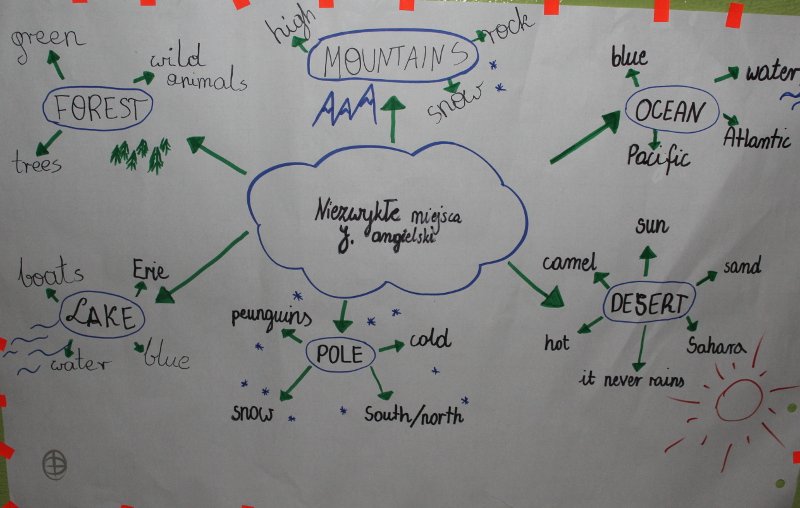 Niezwykłe miejsca
j. angielski
FOREST
green
wild
animals
trees
MOUNTAINS
high
rock
snow
OCEAN
blue
water
Atlantic
Pacific
LAKE
boats
Erie
water
blue
POLE
peunguins
cold
snow
South/north
DESERT
sun
camel
sand
hot
Sahara
it never rains